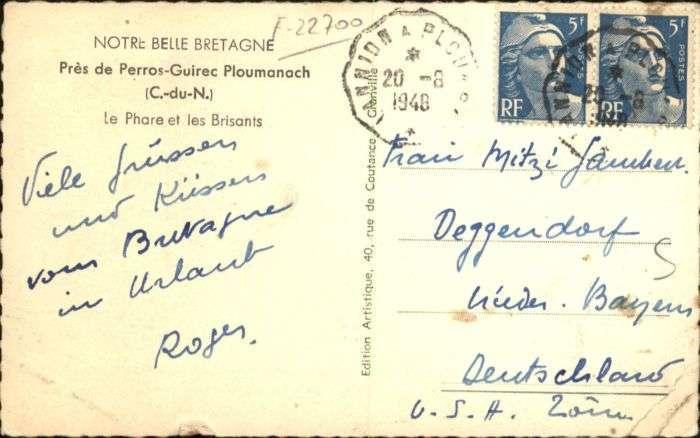 F-22700
NOTRE BELLE BRETAGNE
Près de Perros-Guirec Ploumanach
(C.-du-N.)
Le Phare et les Brisants
Viele Grüssen
und Küssen
vom Bretagne
in Urlaub
Roger.
Edition Artistique, 40, rue de Coutance Granville
LANNION A PLOU
20 -8
1948
5F
POSTES
RF
5F
POSTES
RF
LANNION A PLO
20 -8
1948
Frau Mitzi
Deggendorf
Nieder. Bayern
Deutschland
U.S.A. Zone
5